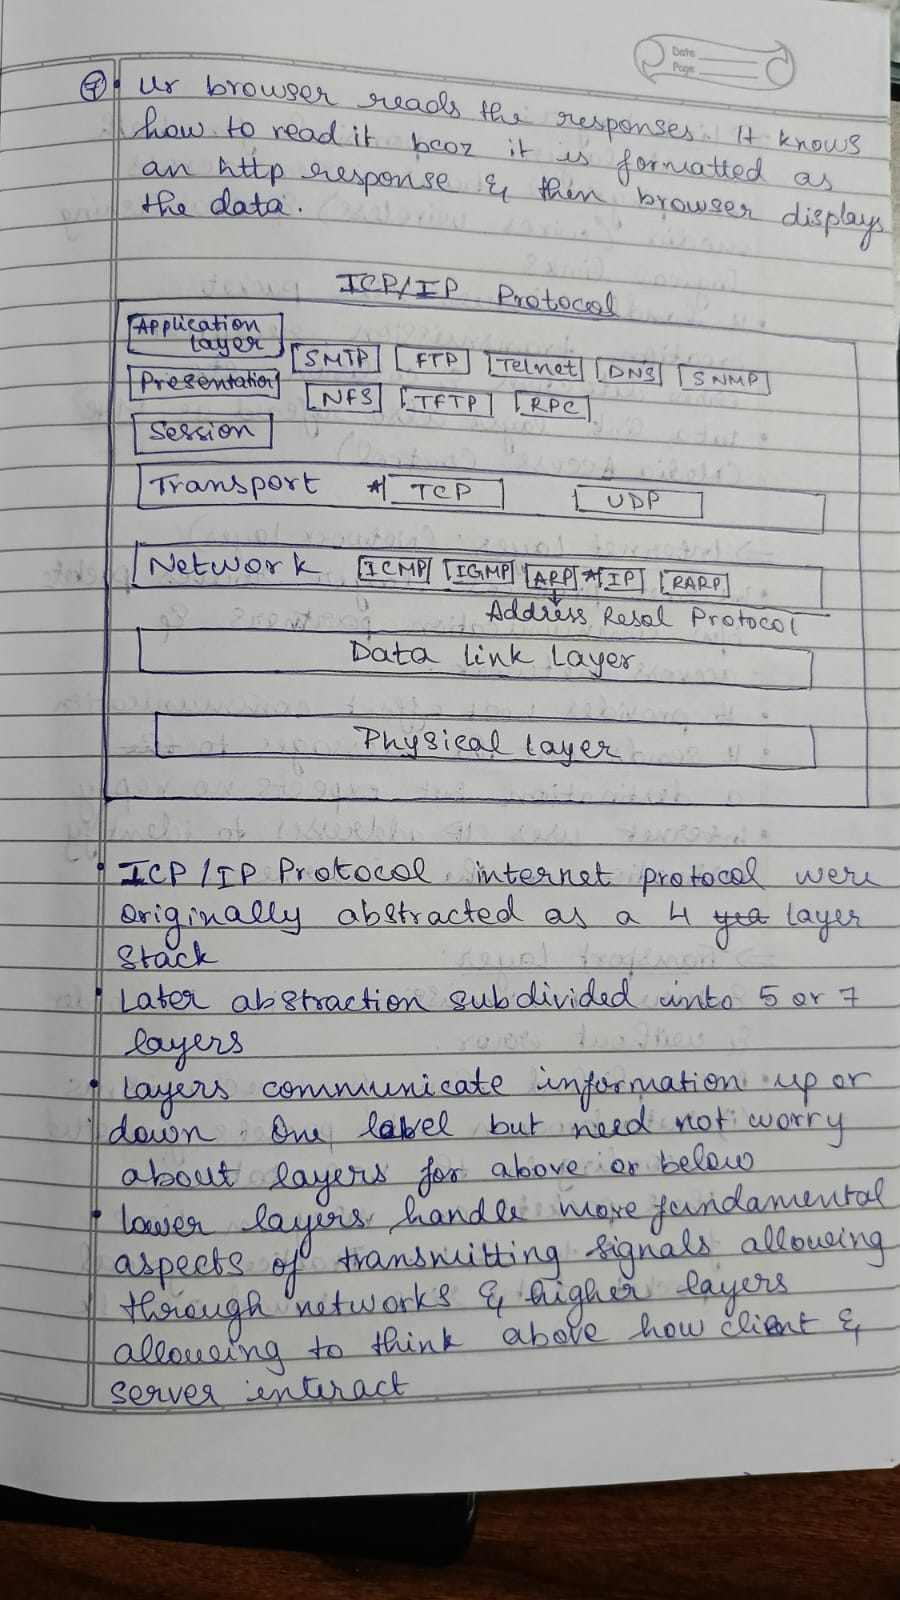 Date
Page
⑦ Ur browser reads the responses. It knows
how to read it bcoz it is formatted as
an http response & then browser displays
the data.
ICP/IP Protocol
Application
layer
SMTP FTP Telnet DNS SNMP
Presentation
NFS TFTP RPC
Session
Transport * TCP UDP
Network ICMP IGMP ARP * IP RARP
Address Resol Protocol
Data link Layer
Physical Layer
• ICP/IP Protocol internet protocol were
originally abstracted as a 4 layer
stack
• Later abstraction subdivided into 5 or 7
layers
• Layers communicate information up or
down. One label but need not worry
about layers for above or below
• lower layers handle more fundamental
aspects of transmitting signals allowing
through networks & higher layers
allowing to think above how client &
server interact